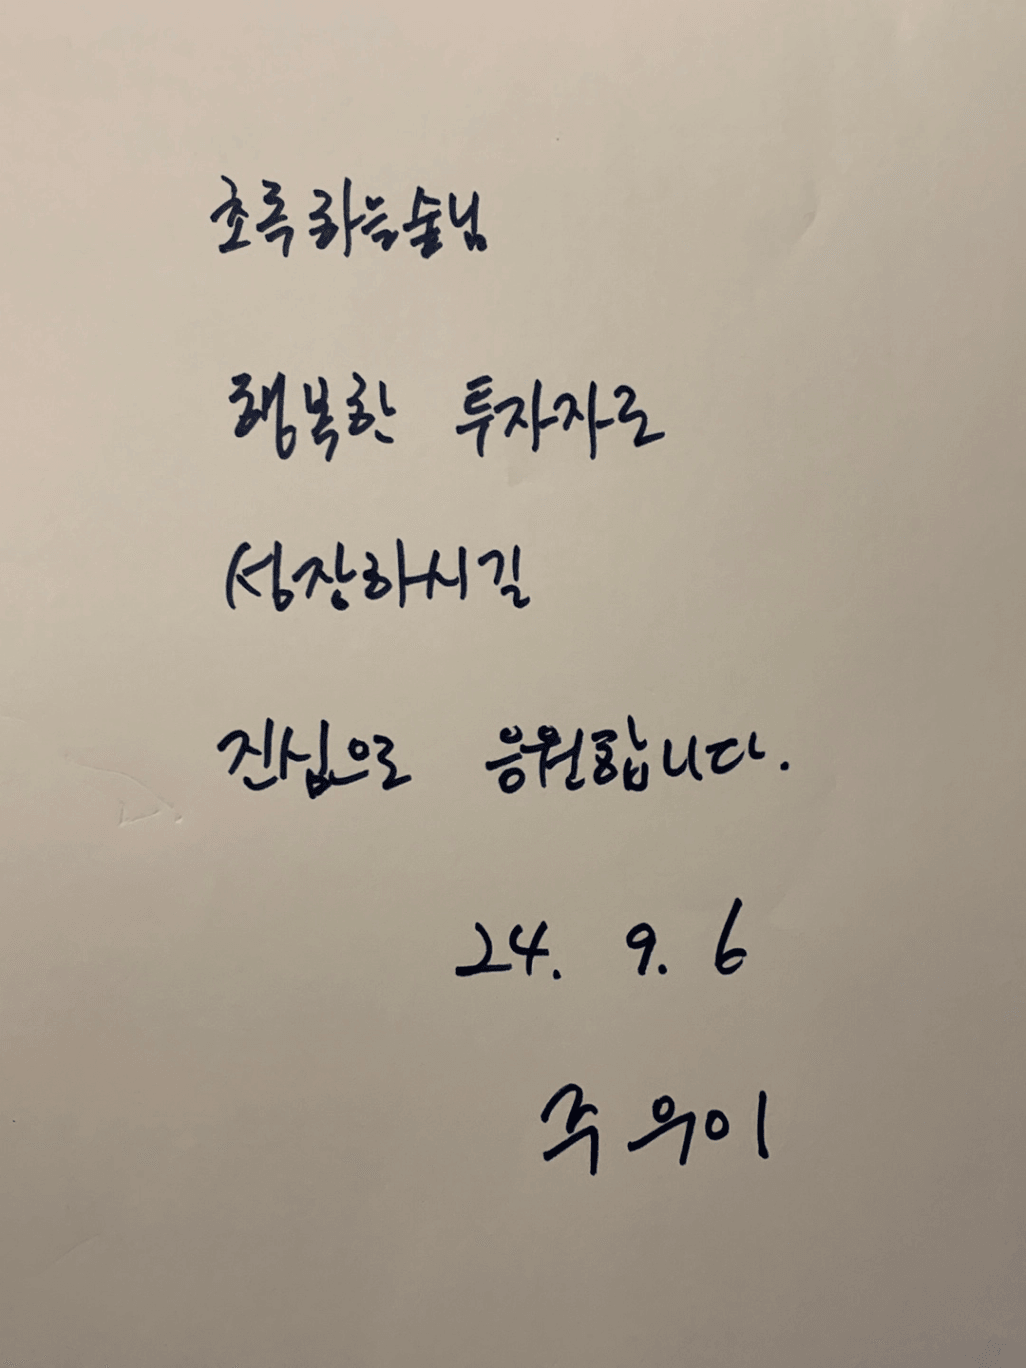 초록하늘숲님
행복한 투자자로
성장하시길
진심으로 응원합니다.
24. 9. 6
주우이